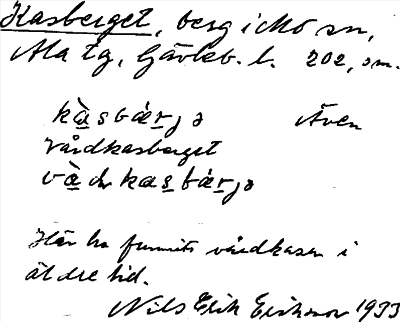 Kasberget, berg i Mo sn,
Ala tg, Gävleb. l. 202, sm.
kàsbærjə Även
Vårdkasberget
vàdkasbærjə
Här ha funnits vårdkasen i
äldre tid.
Nils Erik Eriksson 1933